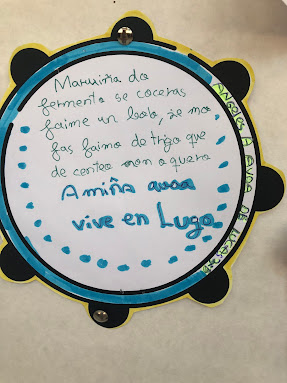 Maruxiña do
fermento se coceras
faime un bolo, se mo
fas faimo de trigo que
de centeo non o quero
A miña avoa
vive en Lugo
ANGELES A AVOA DE LUCAS